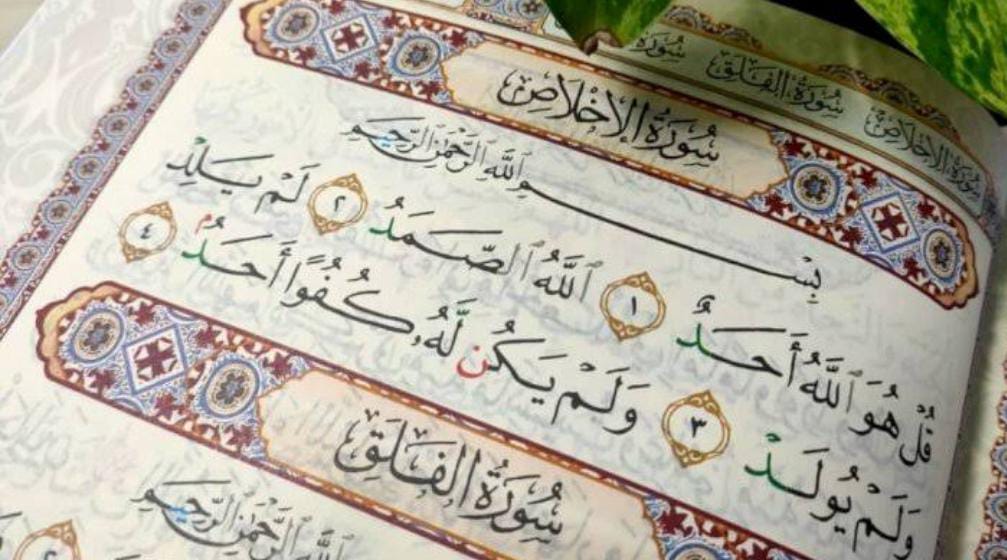 سُورَةُ الإِخْلَاصِ سُورَةُ الفَلَقِ سُورَةُ
سُورَةُ الإِخْلَاصِ
بِسْمِ ٱللَّهِ ٱلرَّحْمَٰنِ ٱلرَّحِيمِ
قُلْ هُوَ ٱللَّهُ أَحَدٌ ١ ٱللَّهُ ٱلصَّمَدُ ٢ لَمْ يَلِدْ
وَلَمْ يُولَدْ ٣ وَلَمْ يَكُن لَّهُۥ كُفُوًا أَحَدٌۢ ٤
سُورَةُ الفَلَقِ
ٱللَّهِ ٱلرَّحْمَٰنِ ٱلرَّحِيمِ